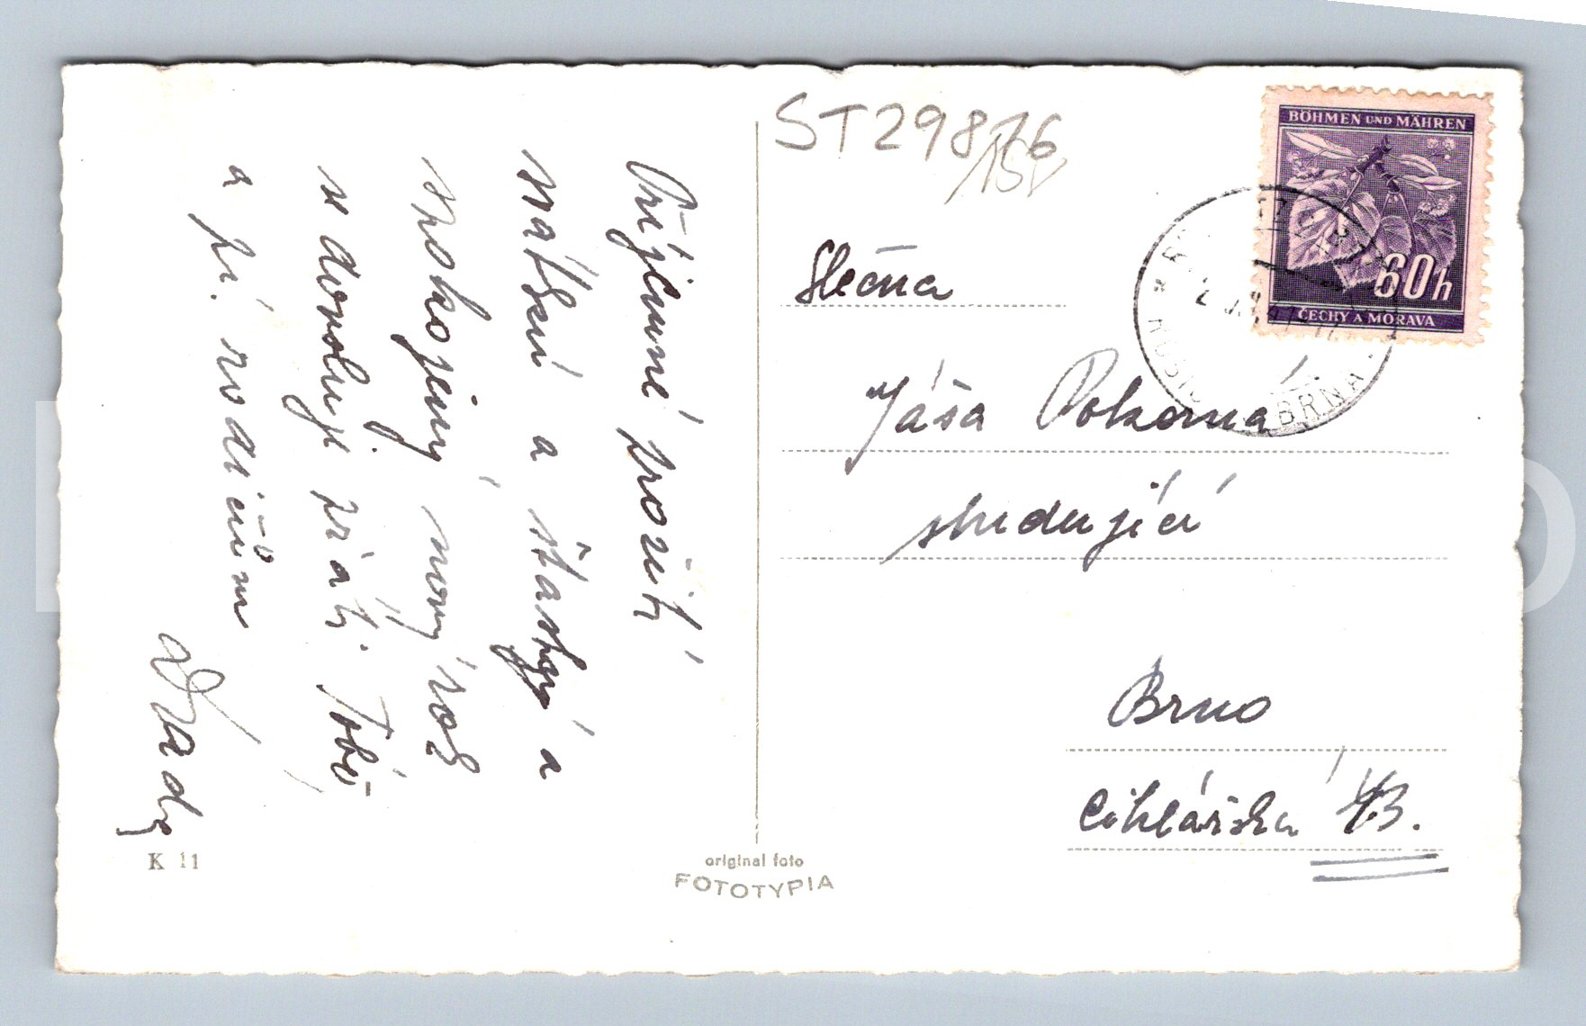 Příjemné prožití
svátků a šťastný a
spokojený nový rok
si dovoluji přáti Tobě
a p. rodičům
Vlada
K 11
original foto
FOTOTYPIA
ST29876
158
BÖHMEN UND MÄHREN
60h
ČECHY A MORAVA
BRNA
Slečna
Jáša Pokorná
studující
Brno
Cihlářská 43.